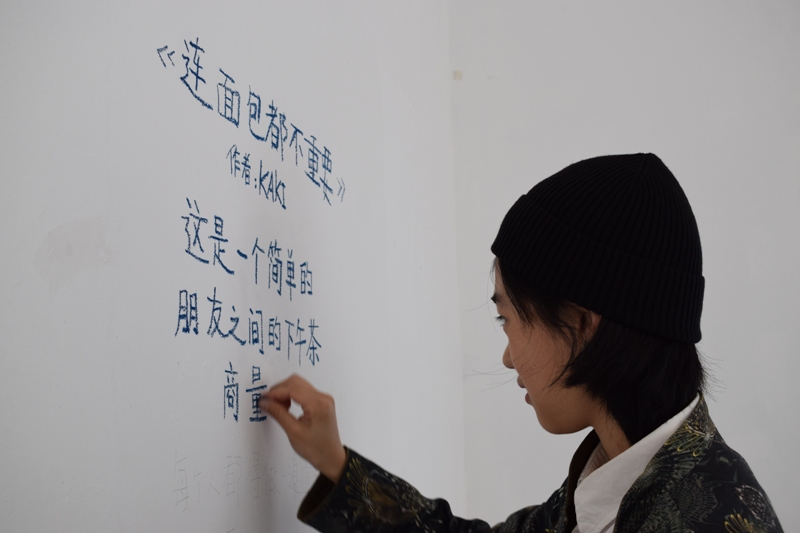 《连面包都不重要》
作者:KAKI
这是一个简单的
朋友之间的下午茶
商量